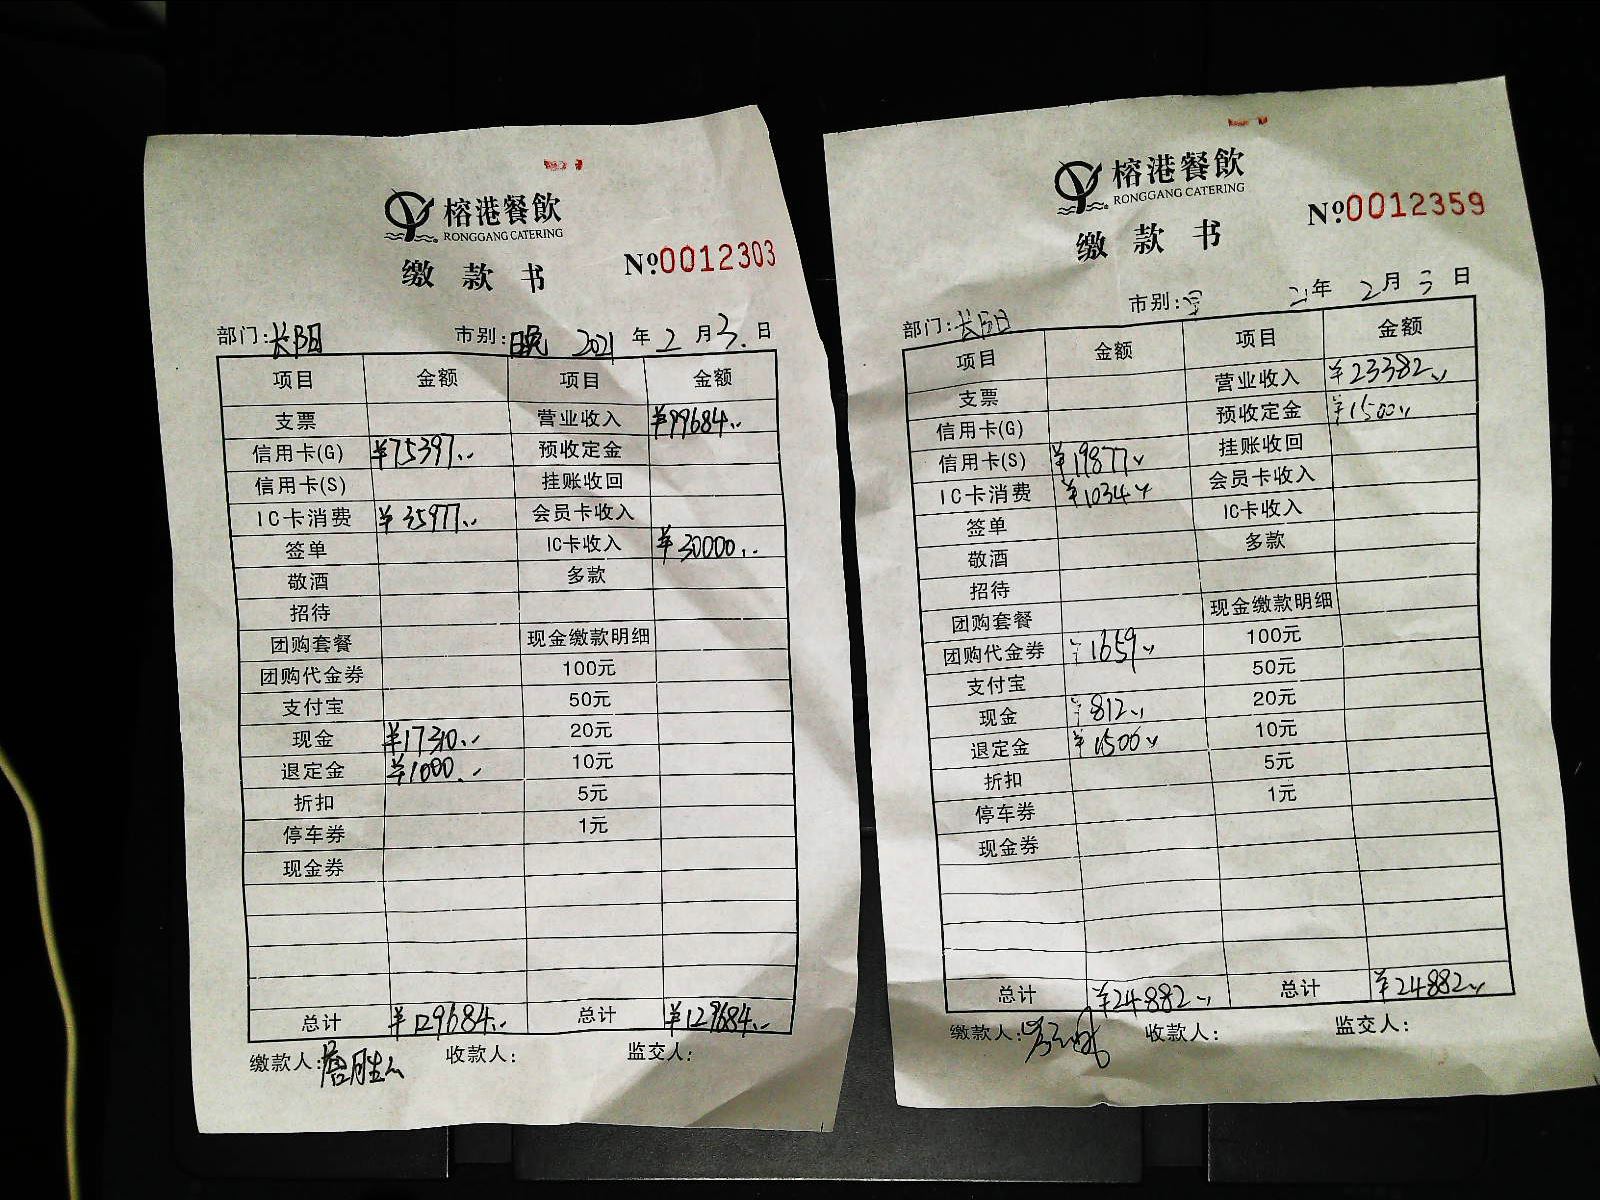 榕港餐飲
RONGGANG CATERING
缴款书
№0012303
部门:长阳 市别:晚 2021年2月3日
项目 金额 项目 金额
支票 营业收入 ¥99684..
信用卡(G) ¥75397.. 预收定金
信用卡(S) 挂账收回
IC卡消费 ¥35977.. 会员卡收入
签单 IC卡收入 ¥30000..
敬酒 多款
招待
团购套餐 现金缴款明细
团购代金券 100元
支付宝 50元
现金 ¥17310.. 20元
退定金 ¥1000.. 10元
折扣 5元
停车券 1元
现金券
总计 ¥129684.. 总计 ¥129684..
缴款人: 收款人: 监交人:
榕港餐飲
RONGGANG CATERING
缴款书
№0012359
部门:长阳 市别: 年2月3日
项目 金额 项目 金额
支票 营业收入 ¥23382..
信用卡(G) 预收定金 ¥1500..
信用卡(S) ¥19877.. 挂账收回
IC卡消费 ¥1034.. 会员卡收入
签单 IC卡收入
敬酒 多款
招待
团购套餐 现金缴款明细
团购代金券 ¥1659.. 100元
支付宝 50元
现金 ¥812.. 20元
退定金 ¥1500.. 10元
折扣 5元
停车券 1元
现金券
总计 ¥24882.. 总计 ¥24882..
缴款人: 收款人: 监交人: